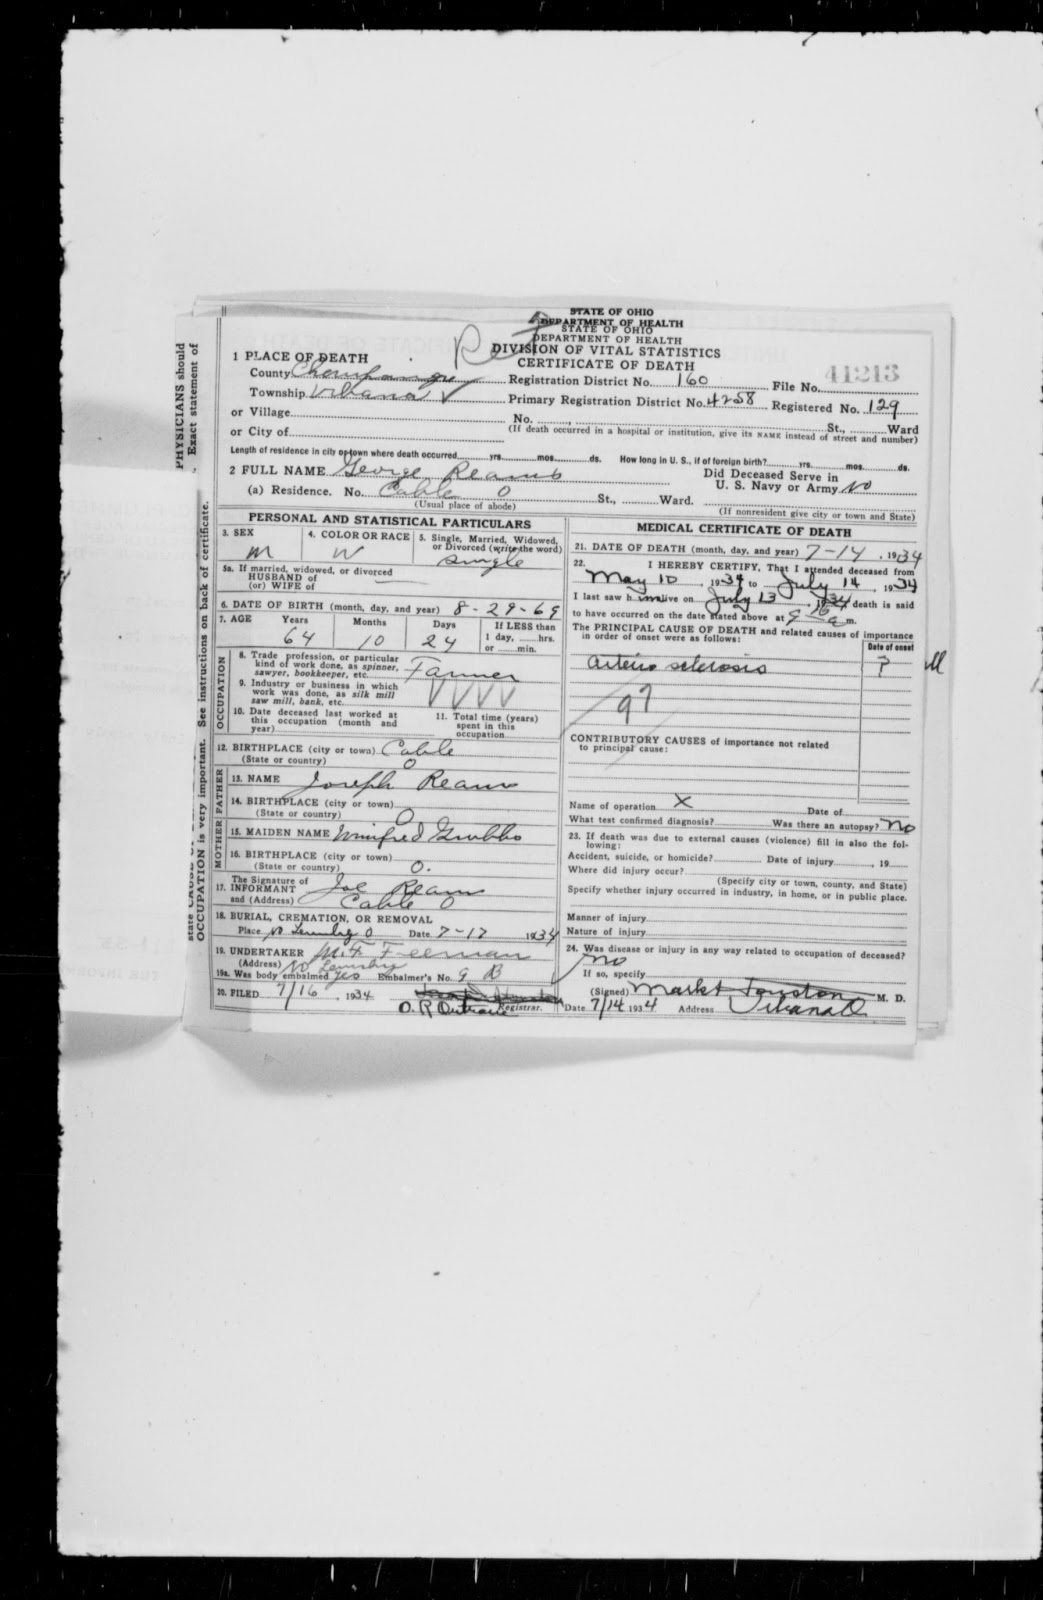 STATE OF OHIO
DEPARTMENT OF HEALTH
STATE OF OHIO
DEPARTMENT OF HEALTH
DIVISION OF VITAL STATISTICS
CERTIFICATE OF DEATH
41213
1 PLACE OF DEATH
County Champaign Registration District No. 160 File No.
Township Urbana Primary Registration District No. 4258 Registered No. 129
or Village No. , St., Ward
or City of (If death occurred in a hospital or institution, give its NAME instead of street and number)
Length of residence in city or town where death occurred yrs. mos. ds. How long in U. S., if of foreign birth? yrs. mos. ds.
2 FULL NAME George Reams Did Deceased Serve in U. S. Navy or Army No
(a) Residence. No. Cable O St., Ward.
(Usual place of abode) (If nonresident give city or town and State)
PERSONAL AND STATISTICAL PARTICULARS
3. SEX 4. COLOR OR RACE 5. Single, Married, Widowed, or Divorced (write the word)
M W Single
5a. If married, widowed, or divorced
HUSBAND of
(or) WIFE of
6. DATE OF BIRTH (month, day, and year) 8-29-69
7. AGE Years Months Days If LESS than
64 10 24 1 day, hrs.
or min.
OCCUPATION
8. Trade profession, or particular
kind of work done, as spinner,
sawyer, bookkeeper, etc. Farmer
9. Industry or business in which
work was done, as silk mill
saw mill, bank, etc.
10. Date deceased last worked at
this occupation (month and
year)
11. Total time (years)
spent in this
occupation
12. BIRTHPLACE (city or town) Cable
(State or country) O
FATHER
13. NAME Joseph Reams
14. BIRTHPLACE (city or town)
(State or country) O
MOTHER
15. MAIDEN NAME Winifred Grubbs
16. BIRTHPLACE (city or town)
(State or country) O.
17. The Signature of
INFORMANT Joe Reams
and (Address) Cable O
18. BURIAL, CREMATION, OR REMOVAL
Place N Lewisbg O Date 7-17 1934
19. UNDERTAKER M.F. Freeman
(Address) No Lewisbg
19a. Was body embalmed yes Embalmer's No. 9 B
20. FILED 7/16, 1934
Registrar.
MEDICAL CERTIFICATE OF DEATH
21. DATE OF DEATH (month, day, and year) 7-14, 1934
22. I HEREBY CERTIFY, That I attended deceased from
May 10, 1934 to July 14, 1934
I last saw him alive on July 13, 1934 death is said
to have occurred on the date stated above at 9 a m.
The PRINCIPAL CAUSE OF DEATH and related causes of importance
in order of onset were as follows:
Date of onset
arterio sclerosis ?
97
CONTRIBUTORY CAUSES of importance not related
to principal cause:
Name of operation X Date of
What test confirmed diagnosis? Was there an autopsy? No
23. If death was due to external causes (violence) fill in also the following:
Accident, suicide, or homicide? Date of injury , 19
Where did injury occur?
(Specify city or town, county, and State)
Specify whether injury occurred in industry, in home, or in public place.
Manner of injury
Nature of injury
24. Was disease or injury in any way related to occupation of deceased?
No
If so, specify
(Signed) Mark Houston M. D.
Date 7/14 1934 Address Urbana O
PHYSICIANS should
Exact statement of
state CAUSE OF
OCCUPATION is very important. See instructions on back of certificate.